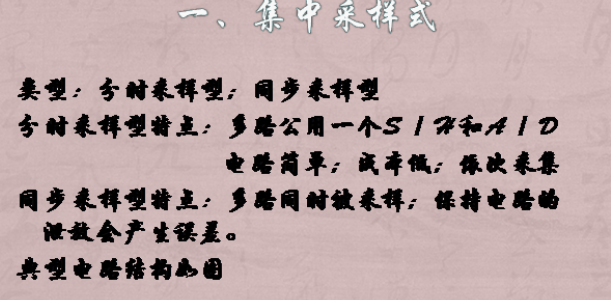 一、集中采样式
类型：分时采样型；同步采样型
分时采样型特点：多路公用一个S / H和A / D
电路简单；成本低；依次采集
同步采样型特点：多路同时被采样；保持电路的
泄放会产生误差。
典型电路结构如图